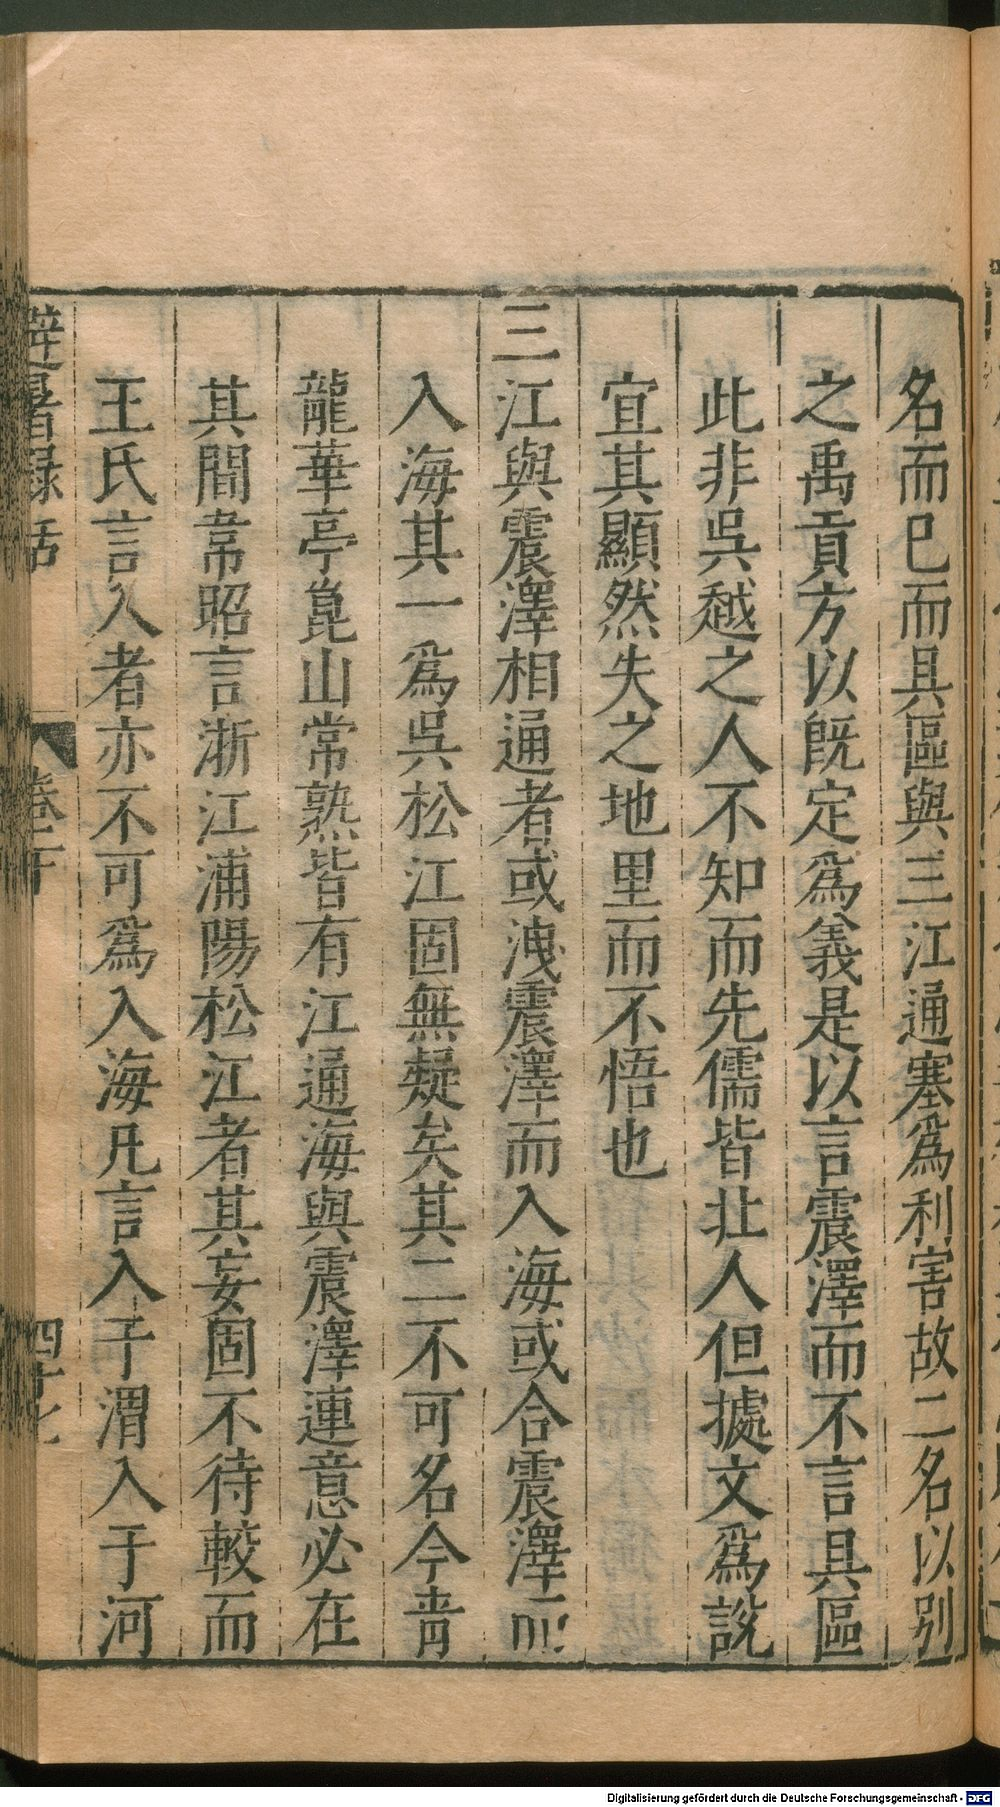 名而巳而具區與三江通塞爲利害故二名以别
之禹貢方以旣定爲義是以言震澤而不言具區
此非吳越之人不知而先儒皆北人但據文爲說
宜其顯然失之地里而不悟也
三江與震澤相通者或洩震澤而入海或合震澤而
入海其一爲吳松江固無疑矣其二不可名今青
龍華亭崑山常熟皆有江通海與震澤連意必在
其間韋昭言浙江浦陽松江者其妄固不待較而
王氏言入者亦不可爲入海凡言入于渭入于河
避暑錄話
卷下
四十七
Digitalisierung gefördert durch die Deutsche Forschungsgemeinschaft - DFG